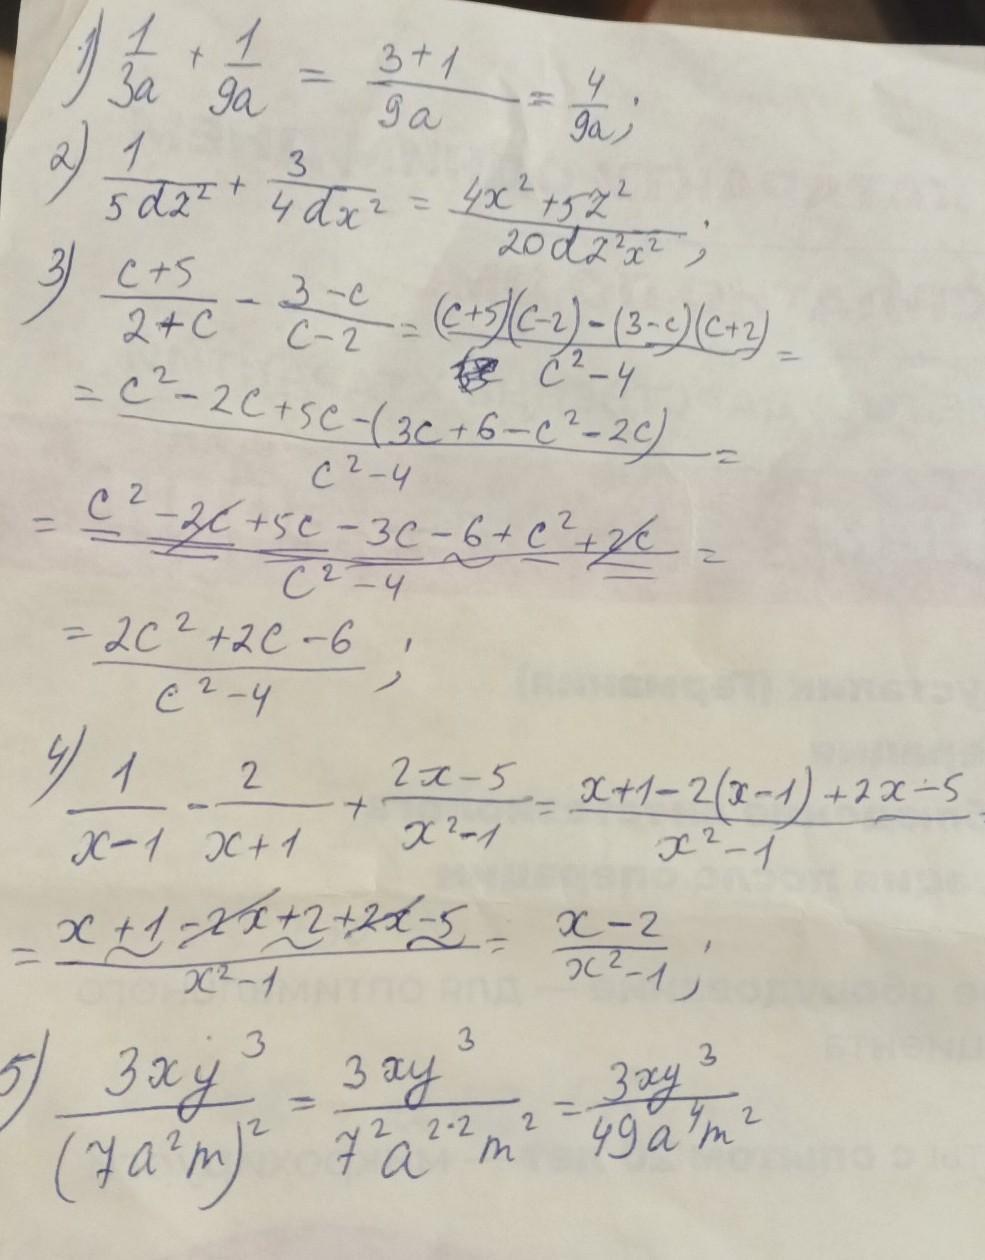 1) 1/3a + 1/9a = 3+1/9a = 4/9a;
2) 1/5dz² + 3/4dx² = 4x²+5z²/20dz²x²;
3) c+5/2+c - 3-c/c-2 = (c+5)(c-2)-(3-c)(c+2)/c²-4 =
= c²-2c+5c-(3c+6-c²-2c)/c²-4 =
= c²-2c+5c-3c-6+c²+2c/c²-4 =
= 2c²+2c-6/c²-4;
4) 1/x-1 - 2/x+1 + 2x-5/x²-1 = x+1-2(x-1)+2x-5/x²-1
= x+1-2x+2+2x-5/x²-1 = x-2/x²-1;
5) 3xy³/(7a²m)² = 3xy³/7²a²·²m² = 3xy³/49a⁴m²